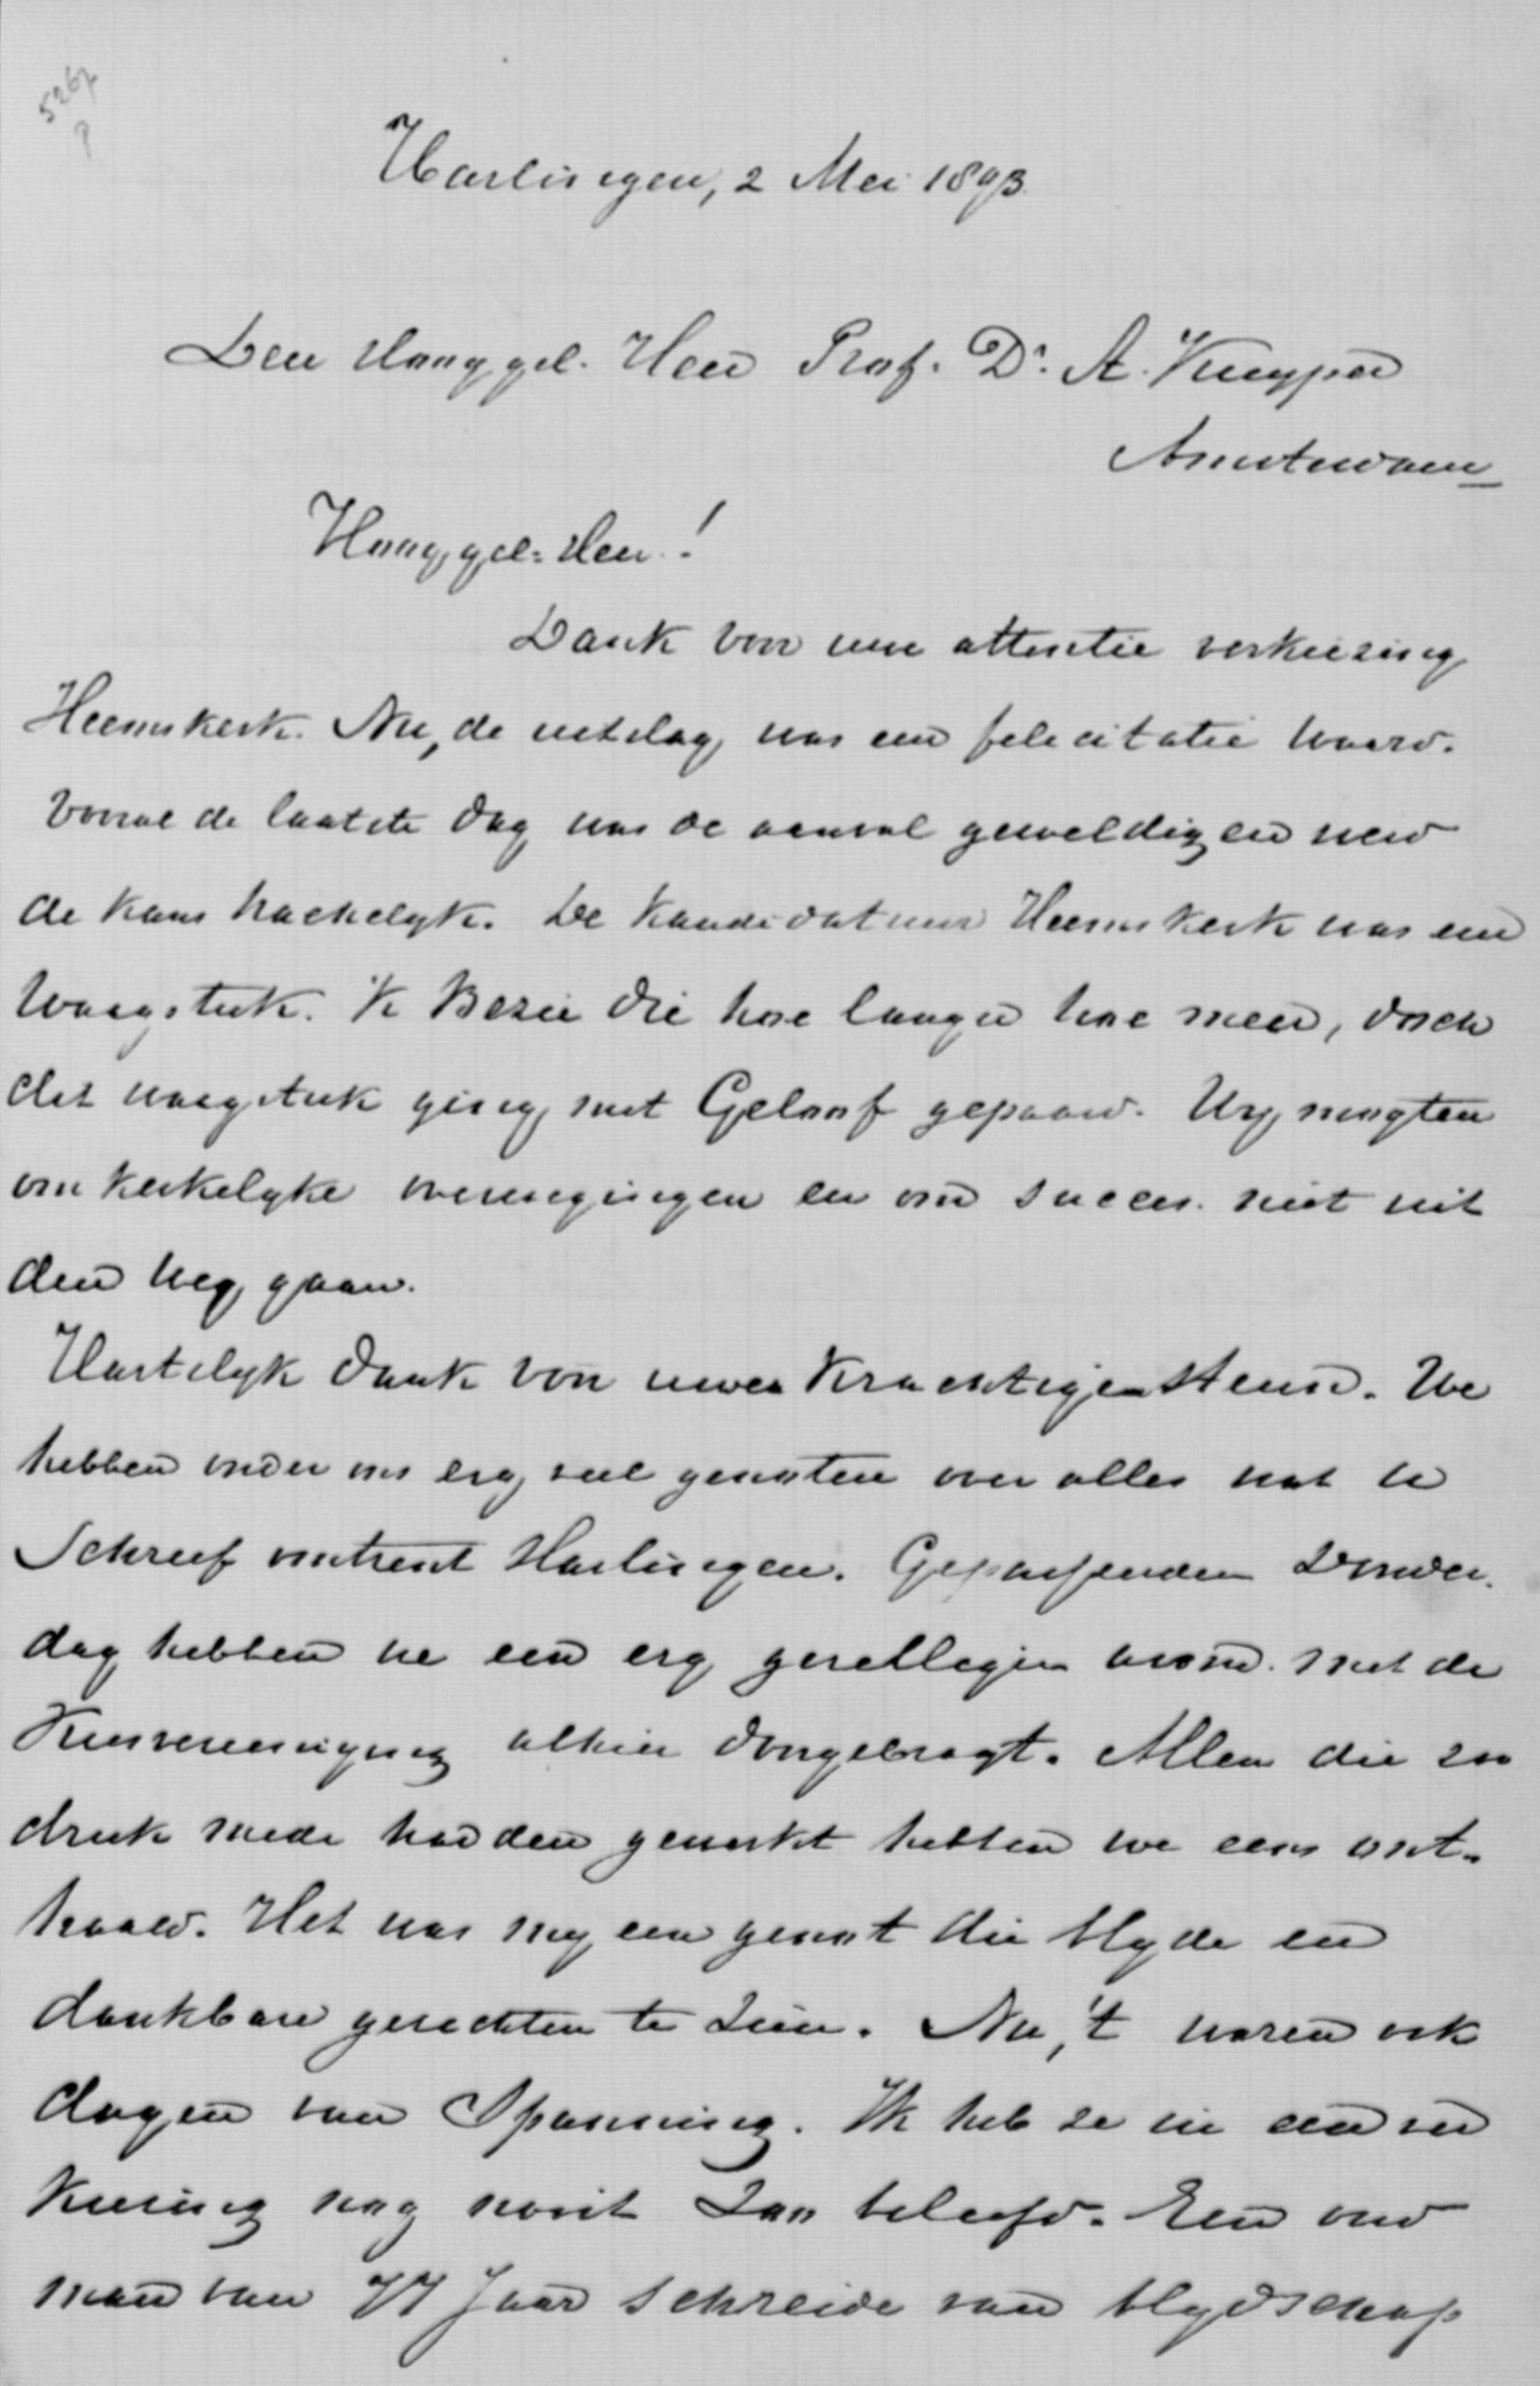 5267
Harlingen, 2 Mei 1893
Den Hooggel. Heer Prof. Dr. A. Kuyper
Amsterdam
Hooggel. Heer!
Dank voor uwe attentie verkiezing
Heemskerk. Nu, de uitslag was een felicitatie waard.
Vooral de laatste dag was de aanval geweldig en werd
de kans hachelyk. De kandidatuur Heemskerk was een
waagstuk. 'k Bezie die hoe langer hoe meer, doch
dat waagstuk ging met Geloof gepaard. Wy mogten
om kerkelyke overwegingen en om succes niet uit
den weg gaan.
Hartelyk dank voor uwen krachtigen steun. We
hebben onder ons erg veel genoten over alles wat U
schreef omtrent Harlingen. Gepasseerden Donder-
dag hebben we een erg gezelligen avond met de
Kiesvereeniging alhier doorgebragt. Allen die zoo
druk mede hadden gewerkt hebben we eens ont-
haald. Het was my een genot die blyde en
dankbare gezichten te zien. Nu, 't waren ook
dagen van Spanning. Ik heb ze in een ver
kiezing nog nooit zoo beleefd. Een oud
man van 77 Jaar schreide van blydschap